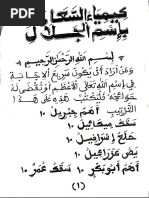 كيمياء السعا
بإسم الجلال
بسم الله الرحمن الرحيم
ومن أراد أن يكون سريع الإجابة
في إسم الله تعالى
أهم جبريل ١٠
سقف ميكائيل ١٠
حلع إسرافيل ١٠
يص عزرائيل ١٠
أهم أبوبكر ١٠ سقف عمر ١٠
(١)